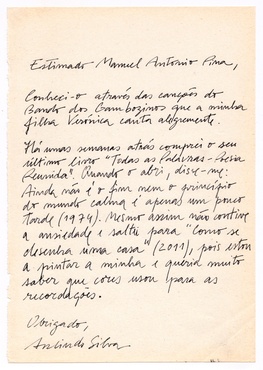 Estimado Manuel António Pina,
Conheci-o através das canções do
Bando dos Gambozinos que a minha
filha Verónica canta alegremente.
Há umas semanas atrás comprei o seu
último livro "Todas as Palavras-Poesia
Reunida". Quando o abri, disse-me:
Ainda não é o fim nem o princípio
do mundo calma é apenas um pouco
tarde (1974). Mesmo assim não contive
a ansiedade e saltei para "Como se
desenha uma casa" (2011), pois estou
a pintar a minha e queria muito
saber que cores usou para as
recordações.
Obrigado,
Arlindo Silva